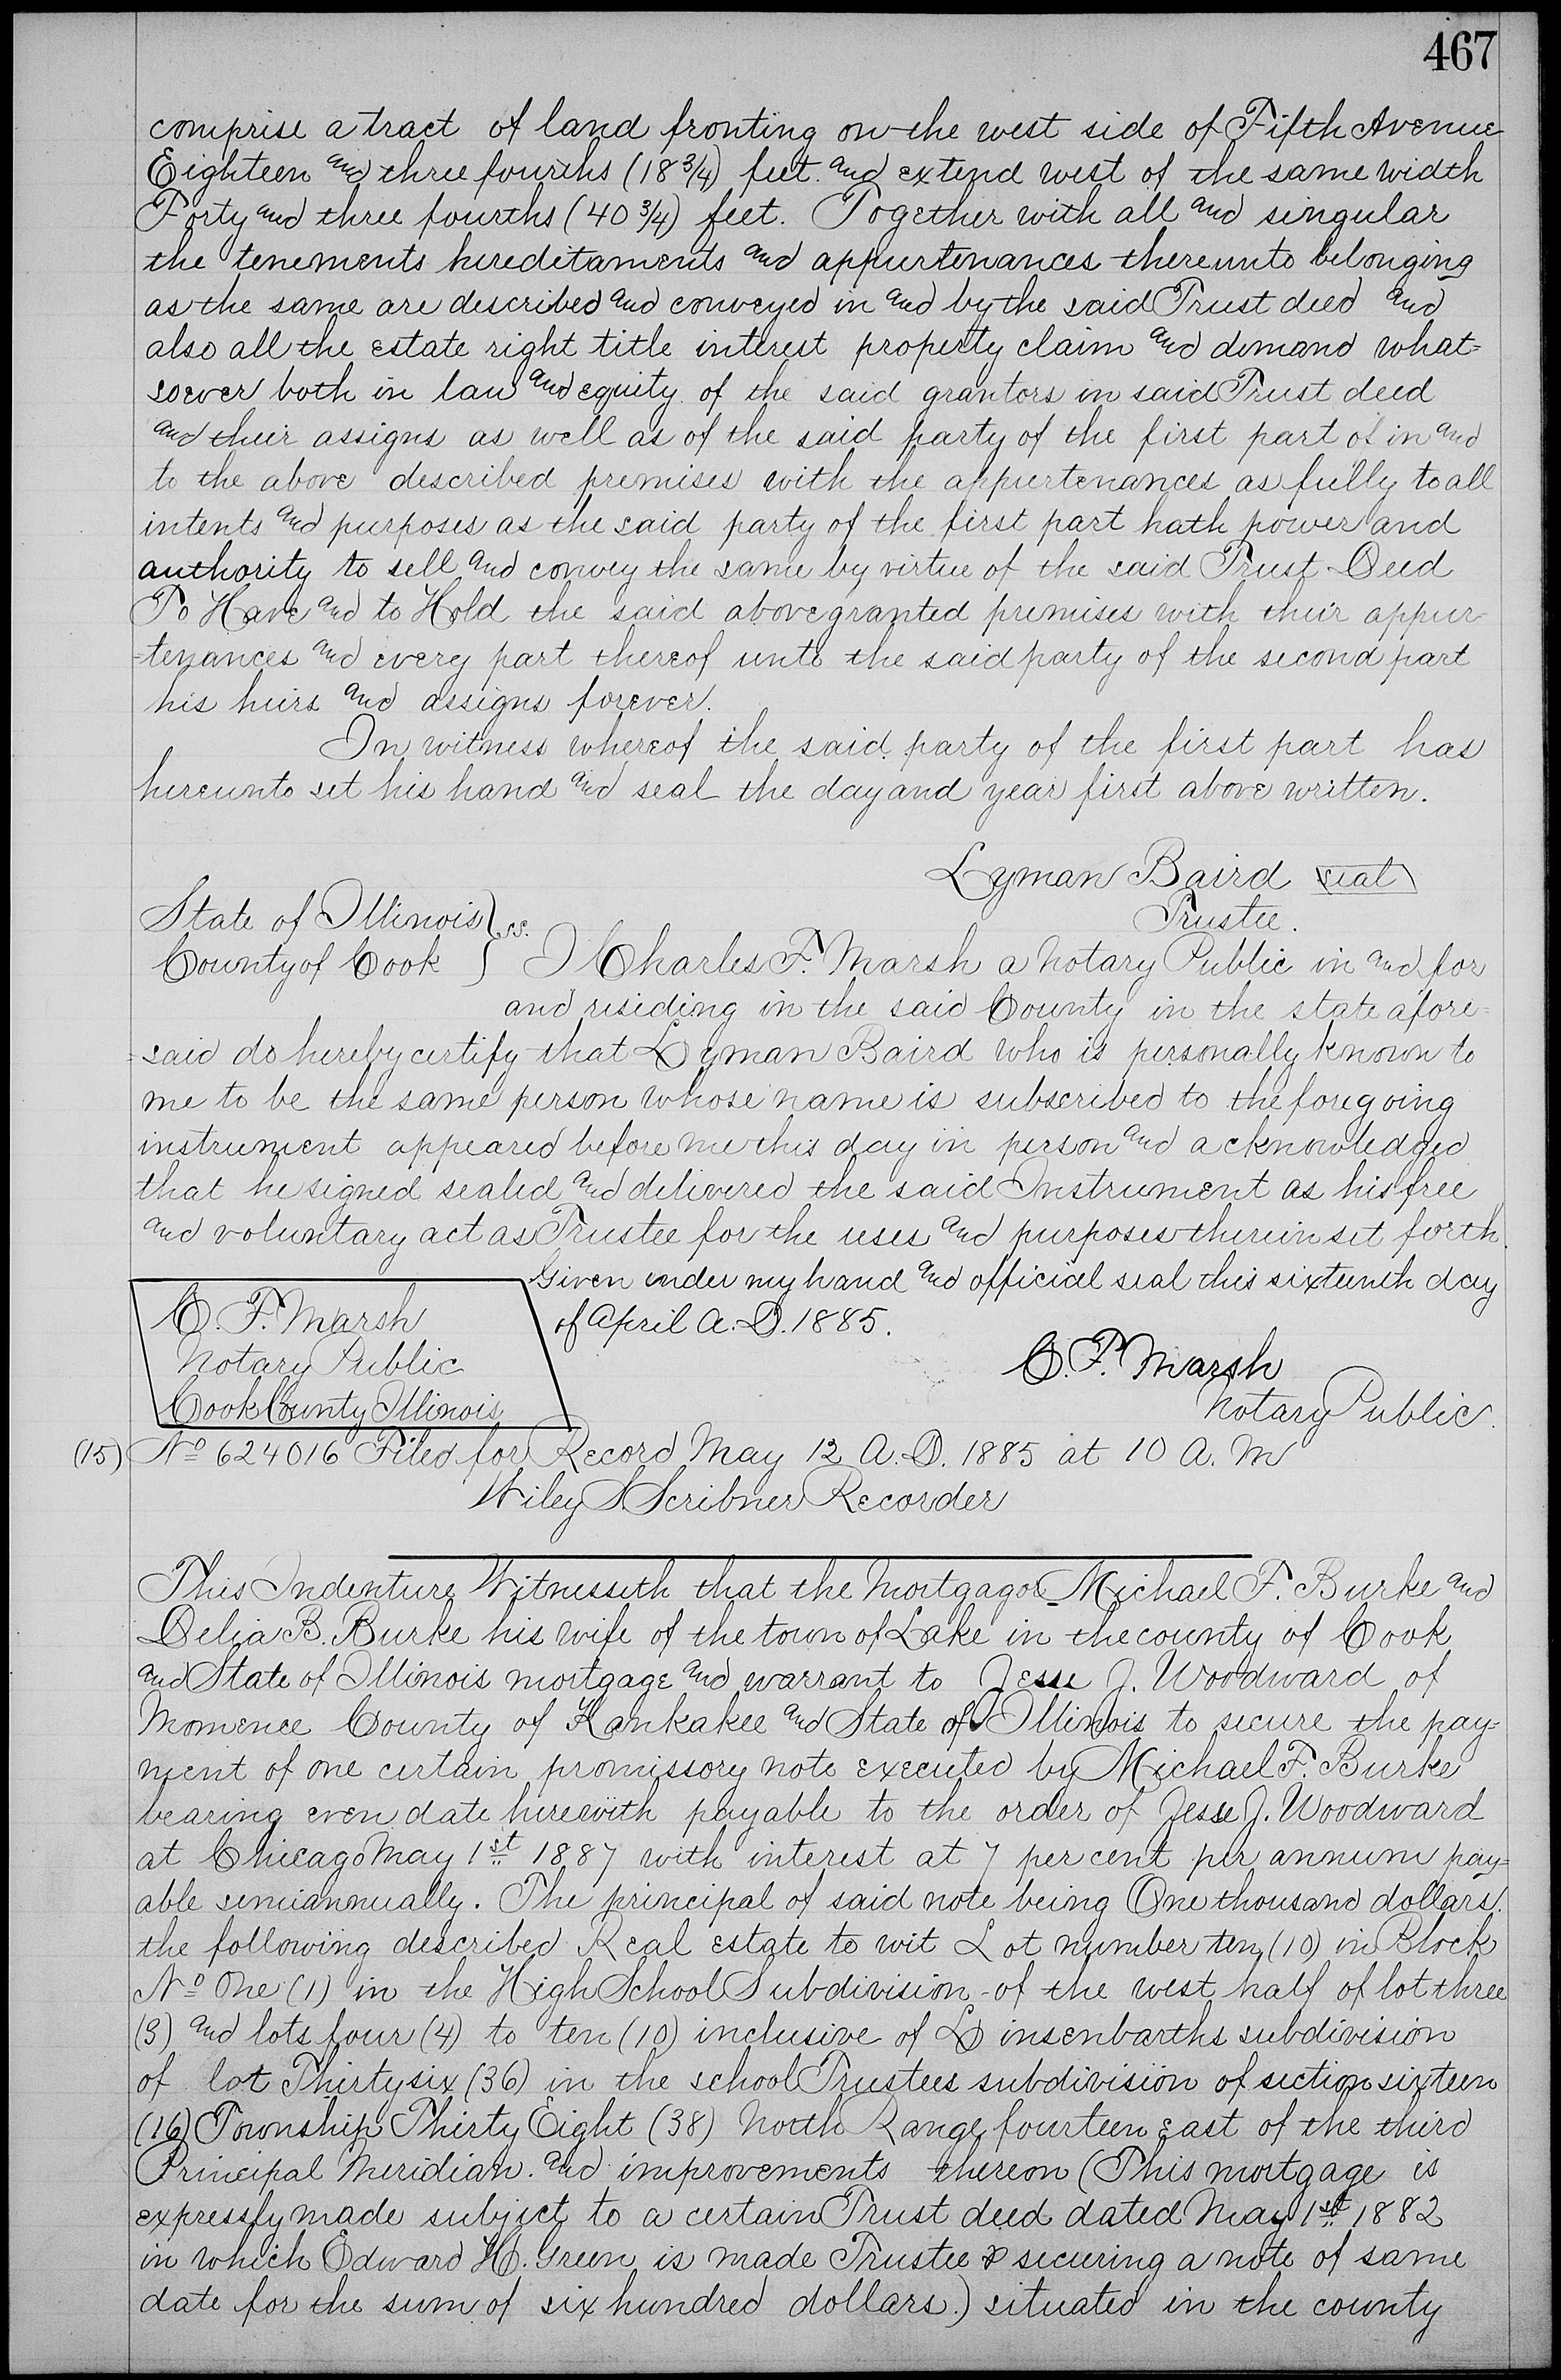 467
comprise a tract of land fronting on the west side of Fifth Avenue
Eighteen and three fourths (18 3/4) feet. and extend west of the same width
Forty and three fourths (40 3/4) feet. Together with all and singular
the tenements hereditaments and appurtenances thereunto belonging
as the same are described and conveyed in and by the said Trust deed and
also all the estate right title interest property claim and demand what=
soever both in law and equity of the said grantors in said Trust deed
and their assigns as well as of the said party of the first part of in and
to the above described premises with the appurtenances as fully to all
intents and purposes as the said party of the first part hath power and
authority to sell and convey the same by virtue of the said Trust Deed
To Have and to Hold the said above granted premises with their appur-
=tenances and every part thereof unto the said party of the second part
his heirs and assigns forever.
In witness whereof the said party of the first part has
hereunto set his hand and seal the day and year first above written.
Lyman Baird seal
Trustee.
State of Illinois } ss.
County of Cook } I Charles F. Marsh a Notary Public in and for
and residing in the said County in the state afore=
=said do hereby certify that Lyman Baird who is personally known to
me to be the same person whose name is subscribed to the foregoing
instrument appeared before me this day in person and acknowledged
that he signed sealed and delivered the said Instrument as his free
and voluntary act as Trustee for the uses and purposes therein set forth.
Given under my hand and official seal this sixteenth day
of April A.D. 1885.
C. F. Marsh
Notary Public
Cook County Illinois
C. F. Marsh
Notary Public.
(15) No 624016 Filed for Record May 12 A.D. 1885 at 10 A. M
Wiley S Scribner Recorder
This Indenture Witnesseth that the Mortgagor Michael F. Burke and
Delia B. Burke his wife of the town of Lake in the county of Cook
and State of Illinois mortgage and warrant to Jesse J. Woodward of
Momence County of Kankakee and State of Illinois to secure the pay=
ment of one certain promissory note executed by Michael F. Burke
bearing even date herewith payable to the order of Jesse J. Woodward
at Chicago May 1st 1887 with interest at 7 per cent per annum pay=
able semiannually. The principal of said note being One thousand dollars.
the following described Real estate to wit Lot number ten (10) in Block
No One (1) in the High School Subdivision of the west half of lot three
(3) and lots four (4) to ten (10) inclusive of L insenbarths subdivision
of lot Thirty six (36) in the school Trustees subdivision of section sixteen
(16) Township Thirty Eight (38) North Range fourteen east of the third
Principal Meridian. and improvements thereon (This mortgage is
expressly made subject to a certain Trust deed dated May 1st 1882
in which Edward H. Green is made Trustee & securing a note of same
date for the sum of six hundred dollars.) situated in the county